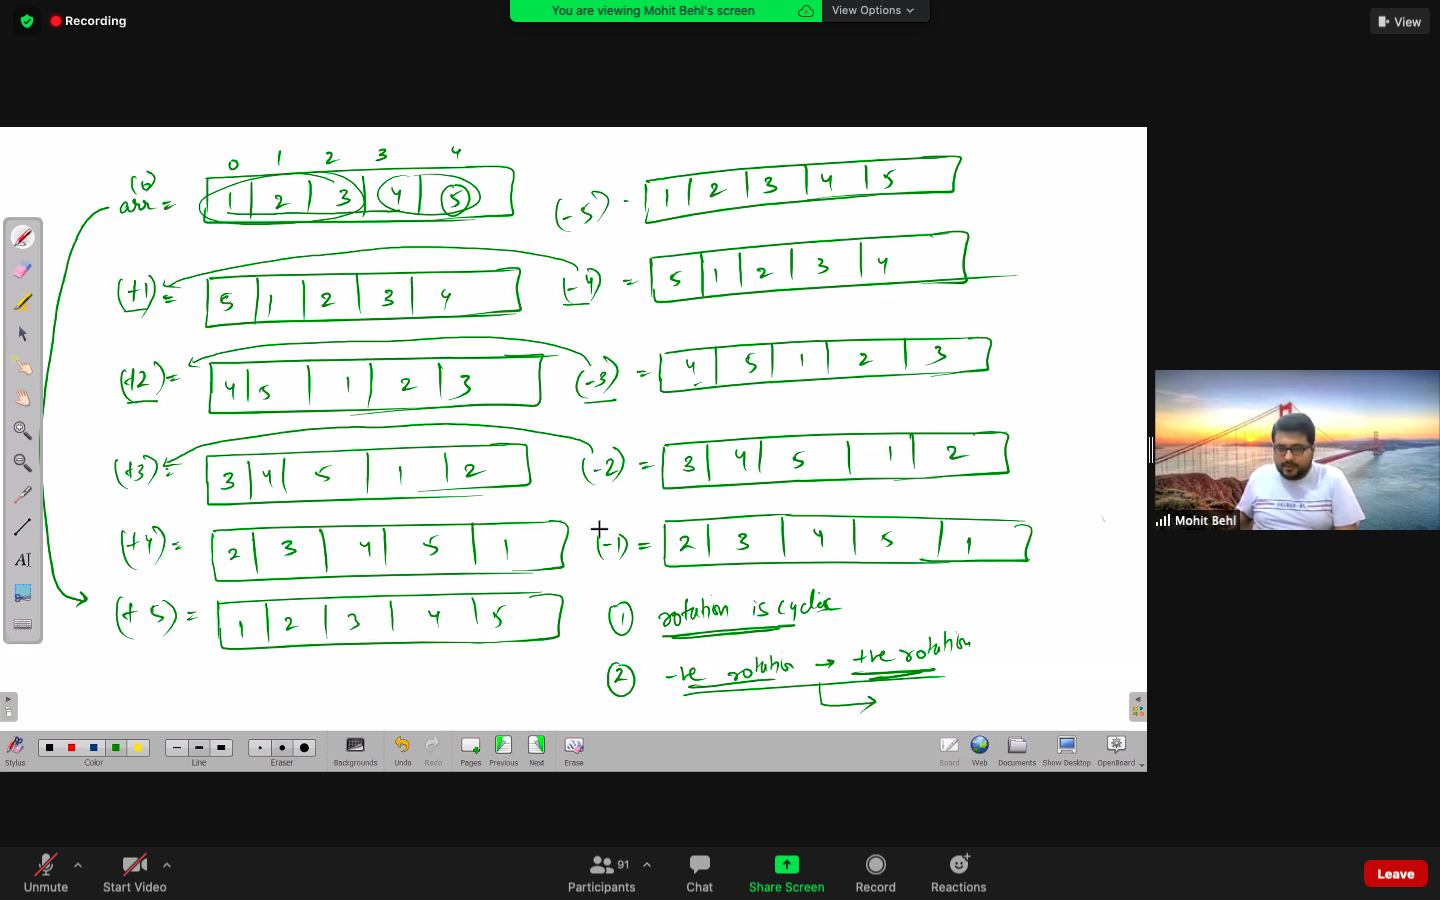 Recording
You are viewing Mohit Behl's screen
View Options
View
0 1 2 3 4
(0)
arr = 1 2 3 4 5
(-5) - 1 2 3 4 5
(+1) = 5 1 2 3 4
(-4) = 5 1 2 3 4
(+2) = 4 5 1 2 3
(-3) = 4 5 1 2 3
(+3) = 3 4 5 1 2
(-2) = 3 4 5 1 2
(+4) = 2 3 4 5 1
(-1) = 2 3 4 5 1
(+5) = 1 2 3 4 5
① rotation is cyclic
② -ve rotation → +ve rotation
Mohit Behl
Stylus Color Line Eraser Backgrounds Undo Redo Pages Previous Next Erase Board Web Documents Show Desktop OpenBoard
Unmute Start Video Participants 91 Chat Share Screen Record Reactions Leave